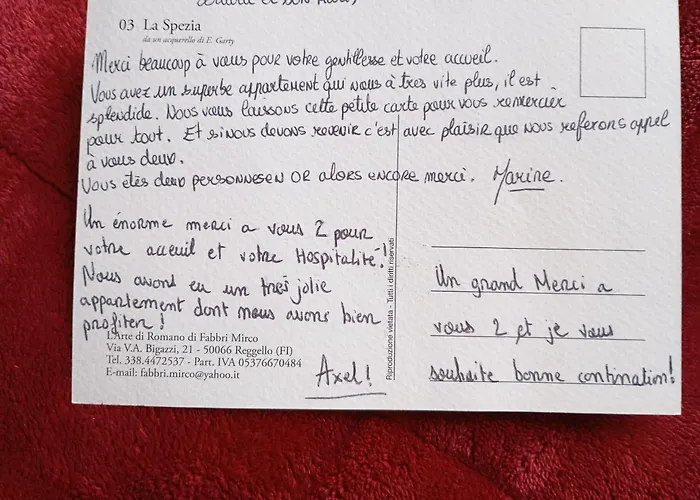 03 La Spezia
da un acquerello di E. Garry
Merci beaucoup à vous pour votre gentillesse et votre accueil.
Vous avez un superbe appartement qui nous à tres vite plus, il est
splendide. Nous vous laissons cette petite carte pour vous remercier
pour tout. Et si nous devons revenir c'est avec plaisir que nous referons appel
à vous deux.
Vous êtes deux personnes en OR alors encore merci. Marine.
Un énorme merci a vous 2 pour
votre acceuil et votre Hospitalité!
Nous avont eu un très jolie
appartement dont nous avons bien
profiter!
Axel!
L'Arte di Romano di Fabbri Mirco
Via V.A. Bigazzi, 21 - 50066 Reggello (FI)
Tel. 338.4472537 - Part. IVA 05376670484
E-mail: fabbri.mirco@yahoo.it
Riproduzione vietata - Tutti i diritti riservati
Un grand Merci a
vous 2 et je vous
souhaite bonne continuation!